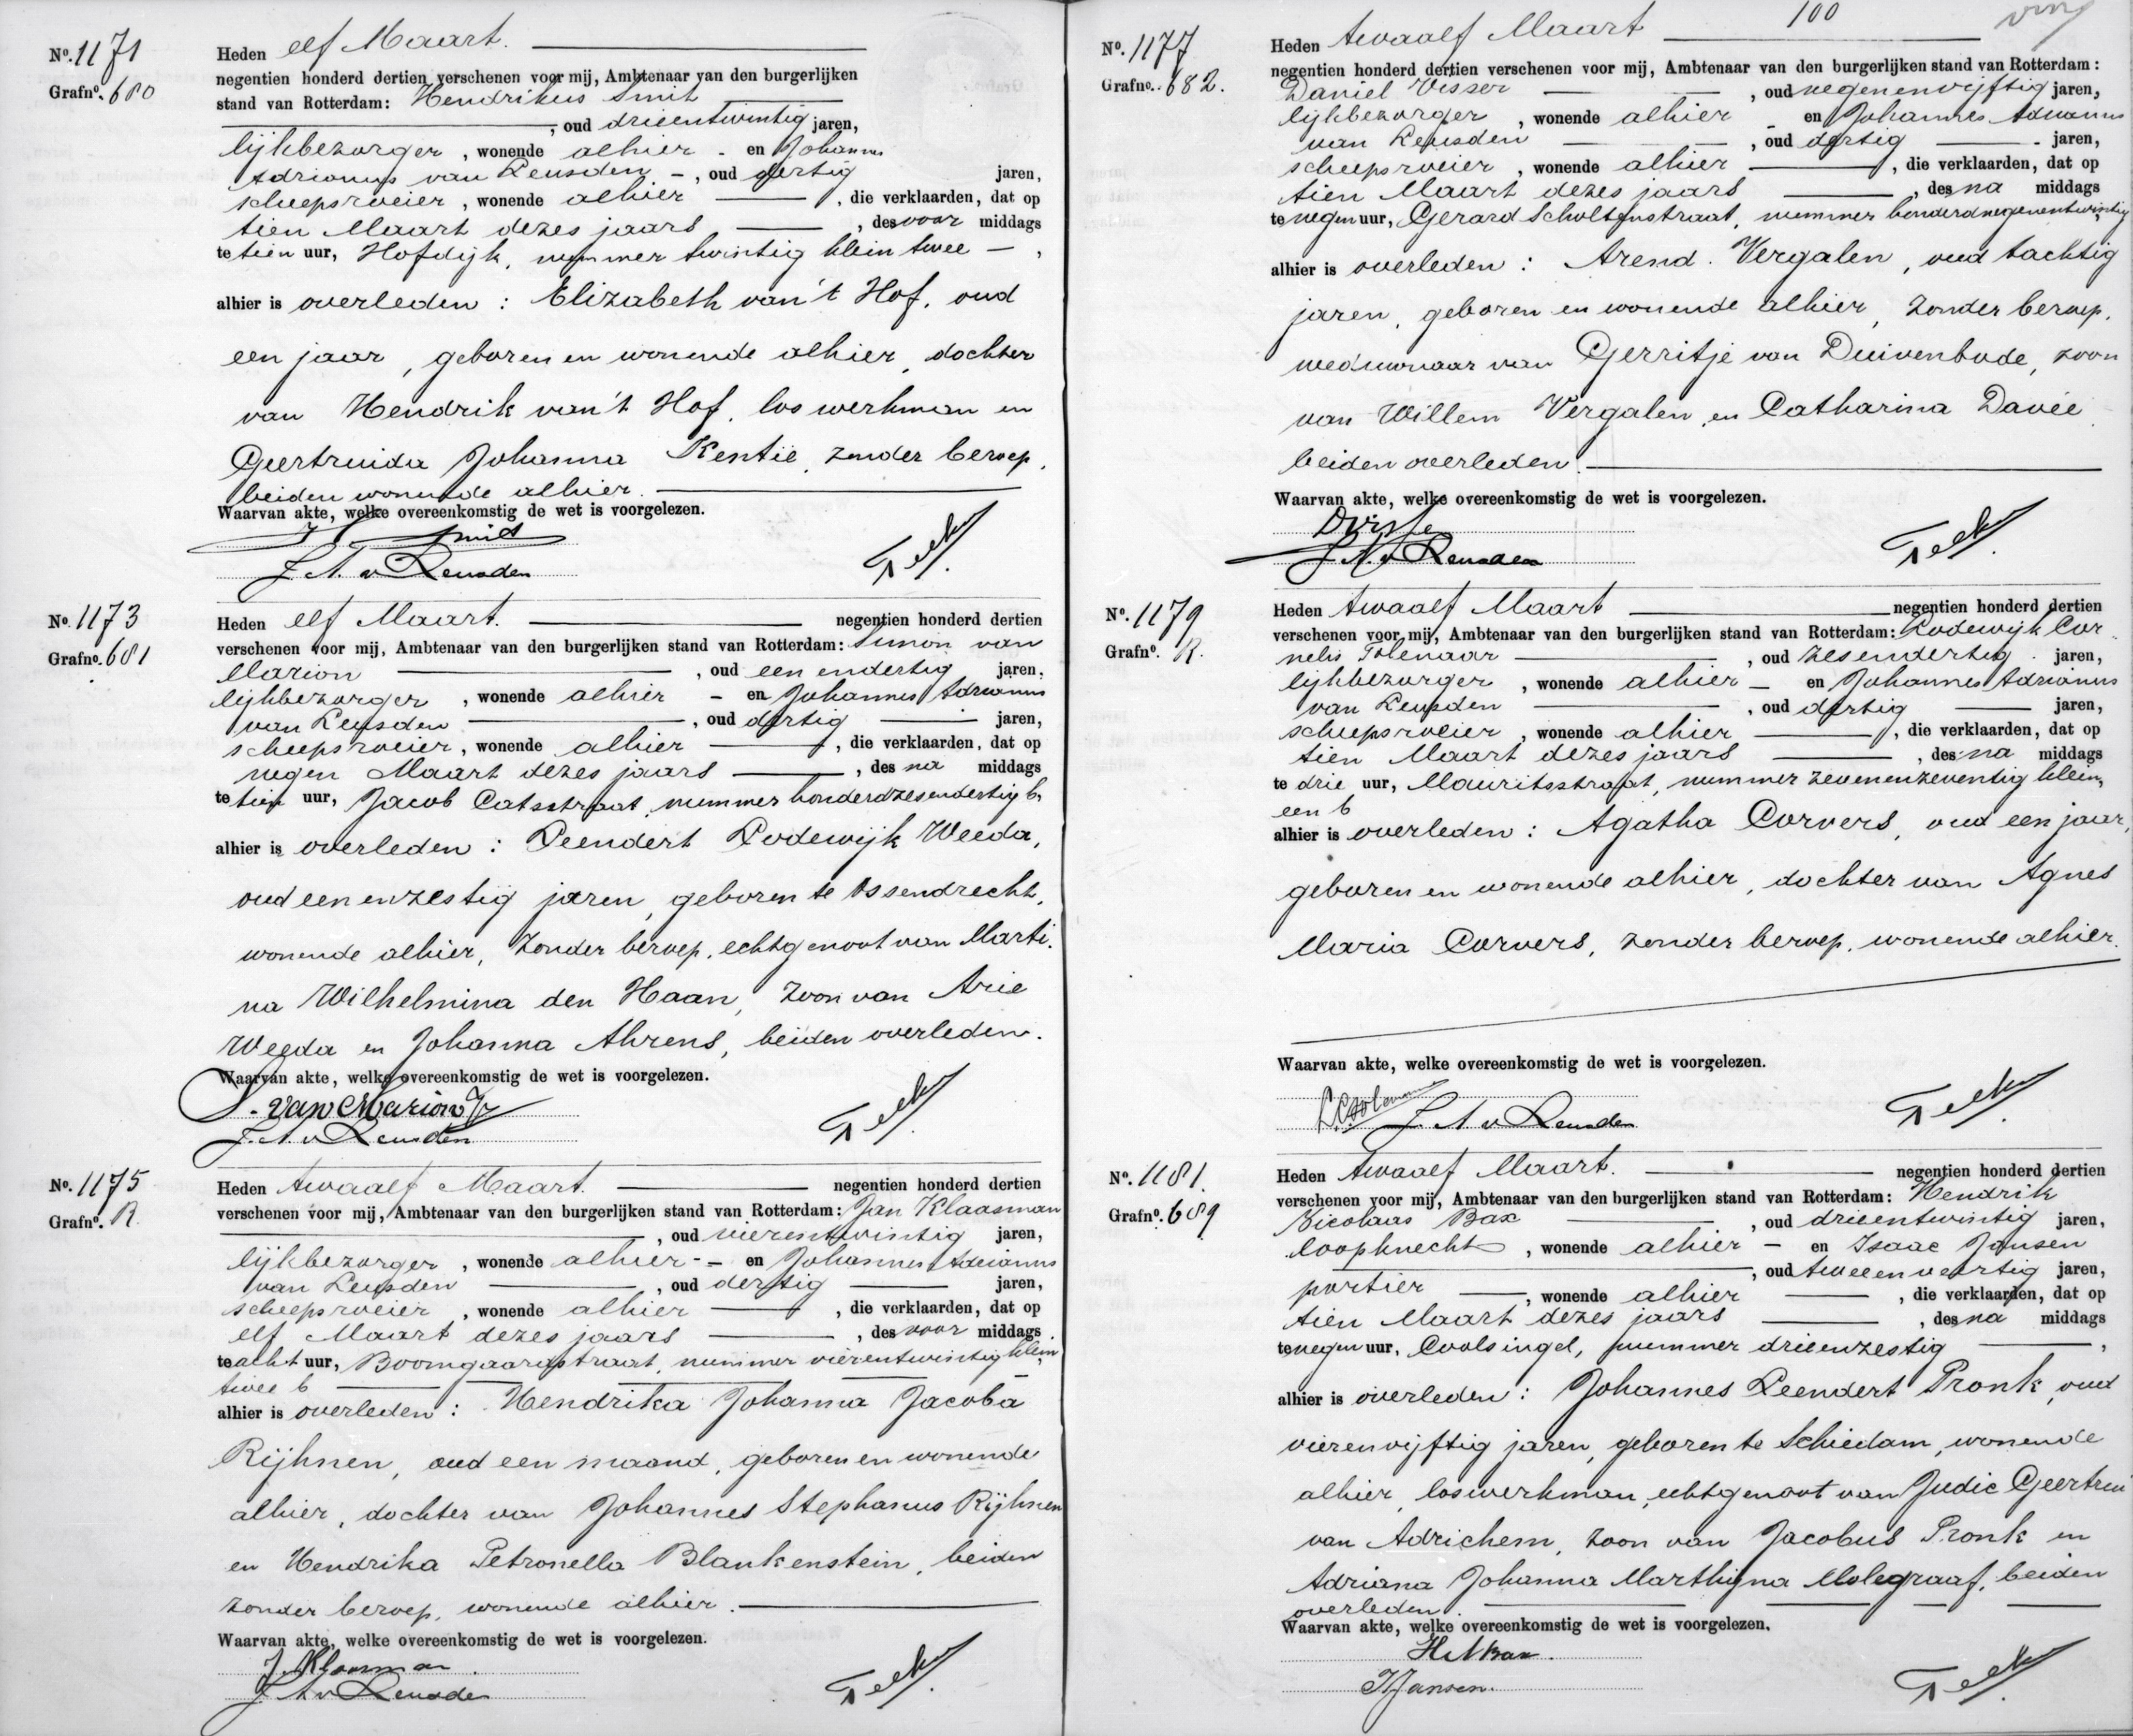 No. 1171
Grafno. 680
Heden elf Maart.
negentien honderd dertien verschenen voor mij, Ambtenaar van den burgerlijken
stand van Rotterdam: Hendrikus Smit
, oud drieentwintig jaren,
lijkbezorger, wonende alhier - en Johannes
Adrianus van Leusden -, oud dertig jaren,
scheepsroeier, wonende alhier , die verklaarden, dat op
tien Maart dezes jaars , des voor middags
te tien uur, Hofdijk, nummer twintig klein twee - ,
alhier is overleden : Elizabeth van 't Hof, oud
een jaar, geboren en wonende alhier, dochter
van Hendrik van 't Hof, los werkman en
Geertruida Johanna Kentie, zonder beroep,
beiden wonende alhier.
Waarvan akte, welke overeenkomstig de wet is voorgelezen.
H Smit
J. A. v Leusden
No. 1173
Grafno. 681
Heden elf Maart. negentien honderd dertien
verschenen voor mij, Ambtenaar van den burgerlijken stand van Rotterdam: Simon van
Marion , oud een endertig jaren,
lijkbezorger, wonende alhier - en Johannes Adrianus
van Leusden , oud dertig jaren,
scheepsroeier, wonende alhier , die verklaarden, dat op
negen Maart dezes jaars , des na middags
te tien uur, Jacob Catsstraat, nummer honderdzesendertig b,
alhier is overleden : Leendert Lodewijk Weeda,
oud een enzestig jaren, geboren te Ossendrecht,
wonende alhier, zonder beroep, echtgenoot van Marti-
na Wilhelmina den Haan, zoon van Arie
Weeda en Johanna Ahrens, beiden overleden.
Waarvan akte, welke overeenkomstig de wet is voorgelezen.
S. van Marion Jr
J. A. v Leusden
No. 1175
Grafno. R.
Heden twaalf Maart. negentien honderd dertien
verschenen voor mij, Ambtenaar van den burgerlijken stand van Rotterdam: Jan Klaasman
, oud vierentwintig jaren,
lijkbezorger, wonende alhier - en Johannes Adrianus
van Leusden , oud dertig jaren,
scheepsroeier, wonende alhier , die verklaarden, dat op
elf Maart dezes jaars , des voor middags
te acht uur, Boomgaardstraat, nummer vierentwintig klein
twee b
alhier is overleden : Hendrika Johanna Jacoba
Rijhnen, oud een maand, geboren en wonende
alhier, dochter van Johannes Stephanus Rijhnen
en Hendrika Petronella Blankenstein, beiden
zonder beroep, wonende alhier.
Waarvan akte, welke overeenkomstig de wet is voorgelezen.
J. Klaasman
J. A. v Leusden
100
No. 1177
Grafno. 682.
Heden twaalf Maart
negentien honderd dertien verschenen voor mij, Ambtenaar van den burgerlijken stand van Rotterdam:
Daniel Visser , oud negenenvijftig jaren,
lijkbezorger, wonende alhier - en Johannes Adrianus
van Leusden , oud dertig jaren,
scheepsroeier, wonende alhier , die verklaarden, dat op
tien Maart dezes jaars , des na middags
te negen uur, Gerard Scholtenstraat, nummer honderdnegenentwintig,
alhier is overleden : Arend Vergalen, oud tachtig
jaren, geboren en wonende alhier, zonder beroep,
weduwnaar van Gerritje van Duivenbode, zoon
van Willem Vergalen en Catharina Davée
beiden overleden.
Waarvan akte, welke overeenkomstig de wet is voorgelezen.
D Visser
J. A. v Leusden
No. 1179
Grafno. R.
Heden twaalf Maart negentien honderd dertien
verschenen voor mij, Ambtenaar van den burgerlijken stand van Rotterdam: Lodewijk Cor-
nelis Tolenaar , oud zesendertig jaren,
lijkbezorger, wonende alhier - en Johannes Adrianus
van Leusden , oud dertig jaren,
scheepsroeier, wonende alhier , die verklaarden, dat op
tien Maart dezes jaars , des na middags
te drie uur, Mauritsstraat, nummer zevenenzeventig klein,
een b
alhier is overleden : Agatha Corvers, oud een jaar,
geboren en wonende alhier, dochter van Agnes
Maria Corvers, zonder beroep, wonende alhier.
Waarvan akte, welke overeenkomstig de wet is voorgelezen.
L. C. Tolenaar
J. A. v Leusden
No. 1181.
Grafno. 689
Heden twaalf Maart. negentien honderd dertien
verschenen voor mij, Ambtenaar van den burgerlijken stand van Rotterdam: Hendrik
Nicolaas Bax , oud drieentwintig jaren,
loopknecht, wonende alhier - en Isaac Jansen
, oud tweeenveertig jaren,
portier , wonende alhier , die verklaarden, dat op
tien Maart dezes jaars , des na middags
te negen uur, Coolsingel, nummer drieenzestig ,
alhier is overleden : Johannes Leendert Pronk, oud
vierenvijftig jaren, geboren te Schiedam, wonende
alhier, loswerkman, echtgenoot van Judic Geertrui
van Adrichem, zoon van Jacobus Pronk en
Adriana Johanna Marthijna Molegraaf, beiden
overleden.
Waarvan akte, welke overeenkomstig de wet is voorgelezen.
H N Bax.
I Jansen.